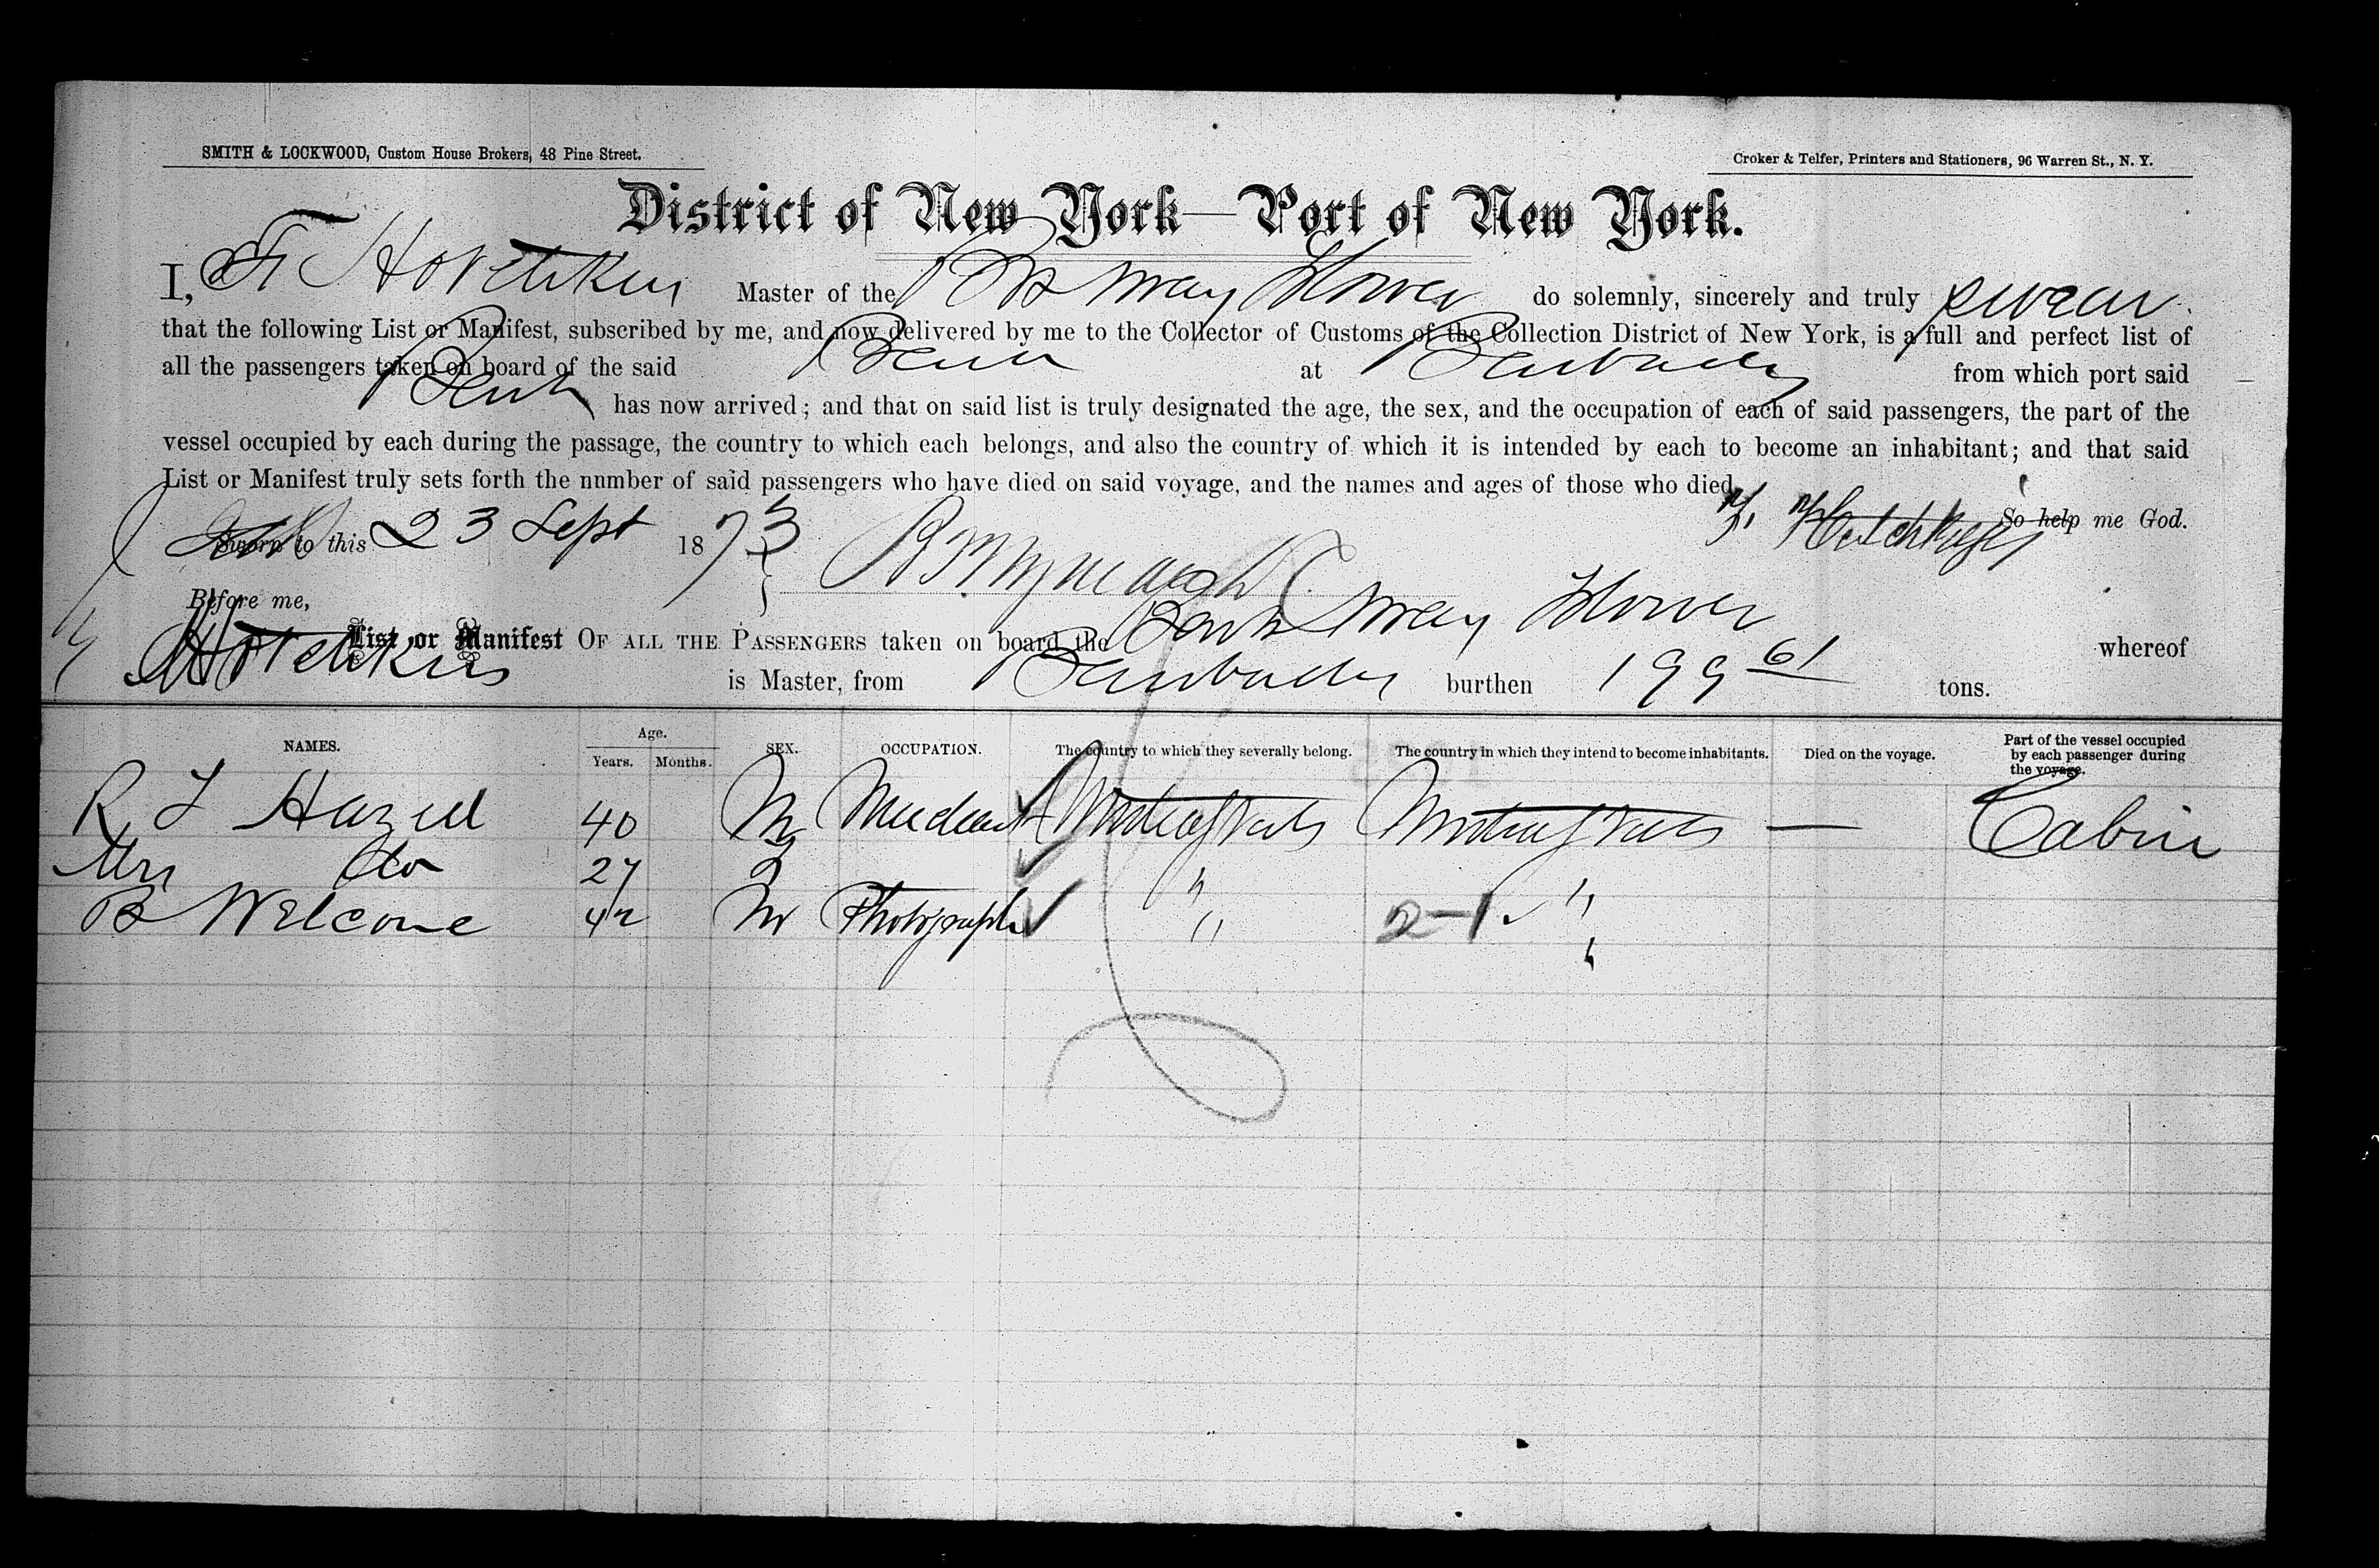 SMITH & LOCKWOOD, Custom House Brokers, 48 Pine Street.
Croker & Telfer, Printers and Stationers, 96 Warren St., N. Y.
District of New York—Port of New York.
I, F Hotchkiss Master of the Bk May Flower do solemnly, sincerely and truly swear
that the following List or Manifest, subscribed by me, and now delivered by me to the Collector of Customs of the Collection District of New York, is a full and perfect list of
all the passengers taken on board of the said Bark at Barbados from which port said
Bark has now arrived; and that on said list is truly designated the age, the sex, and the occupation of each of said passengers, the part of the
vessel occupied by each during the passage, the country to which each belongs, and also the country of which it is intended by each to become an inhabitant; and that said
List or Manifest truly sets forth the number of said passengers who have died on said voyage, and the names and ages of those who died.
So help me God.
Sworn to this 23 Sept 1873
Before me,
List or Manifest OF ALL THE PASSENGERS taken on board the Bark May Flower whereof
Hotchkiss is Master, from Barbados burthen 199 61 tons.
NAMES. Age. Years. Months. SEX. OCCUPATION. The country to which they severally belong. The country in which they intend to become inhabitants. Died on the voyage. Part of the vessel occupied by each passenger during the voyage.
R T Hazell 40 M Merchant — Cabin
Mrs do 27 "
B Welcome 42 M Photograph " 2-1 "
"